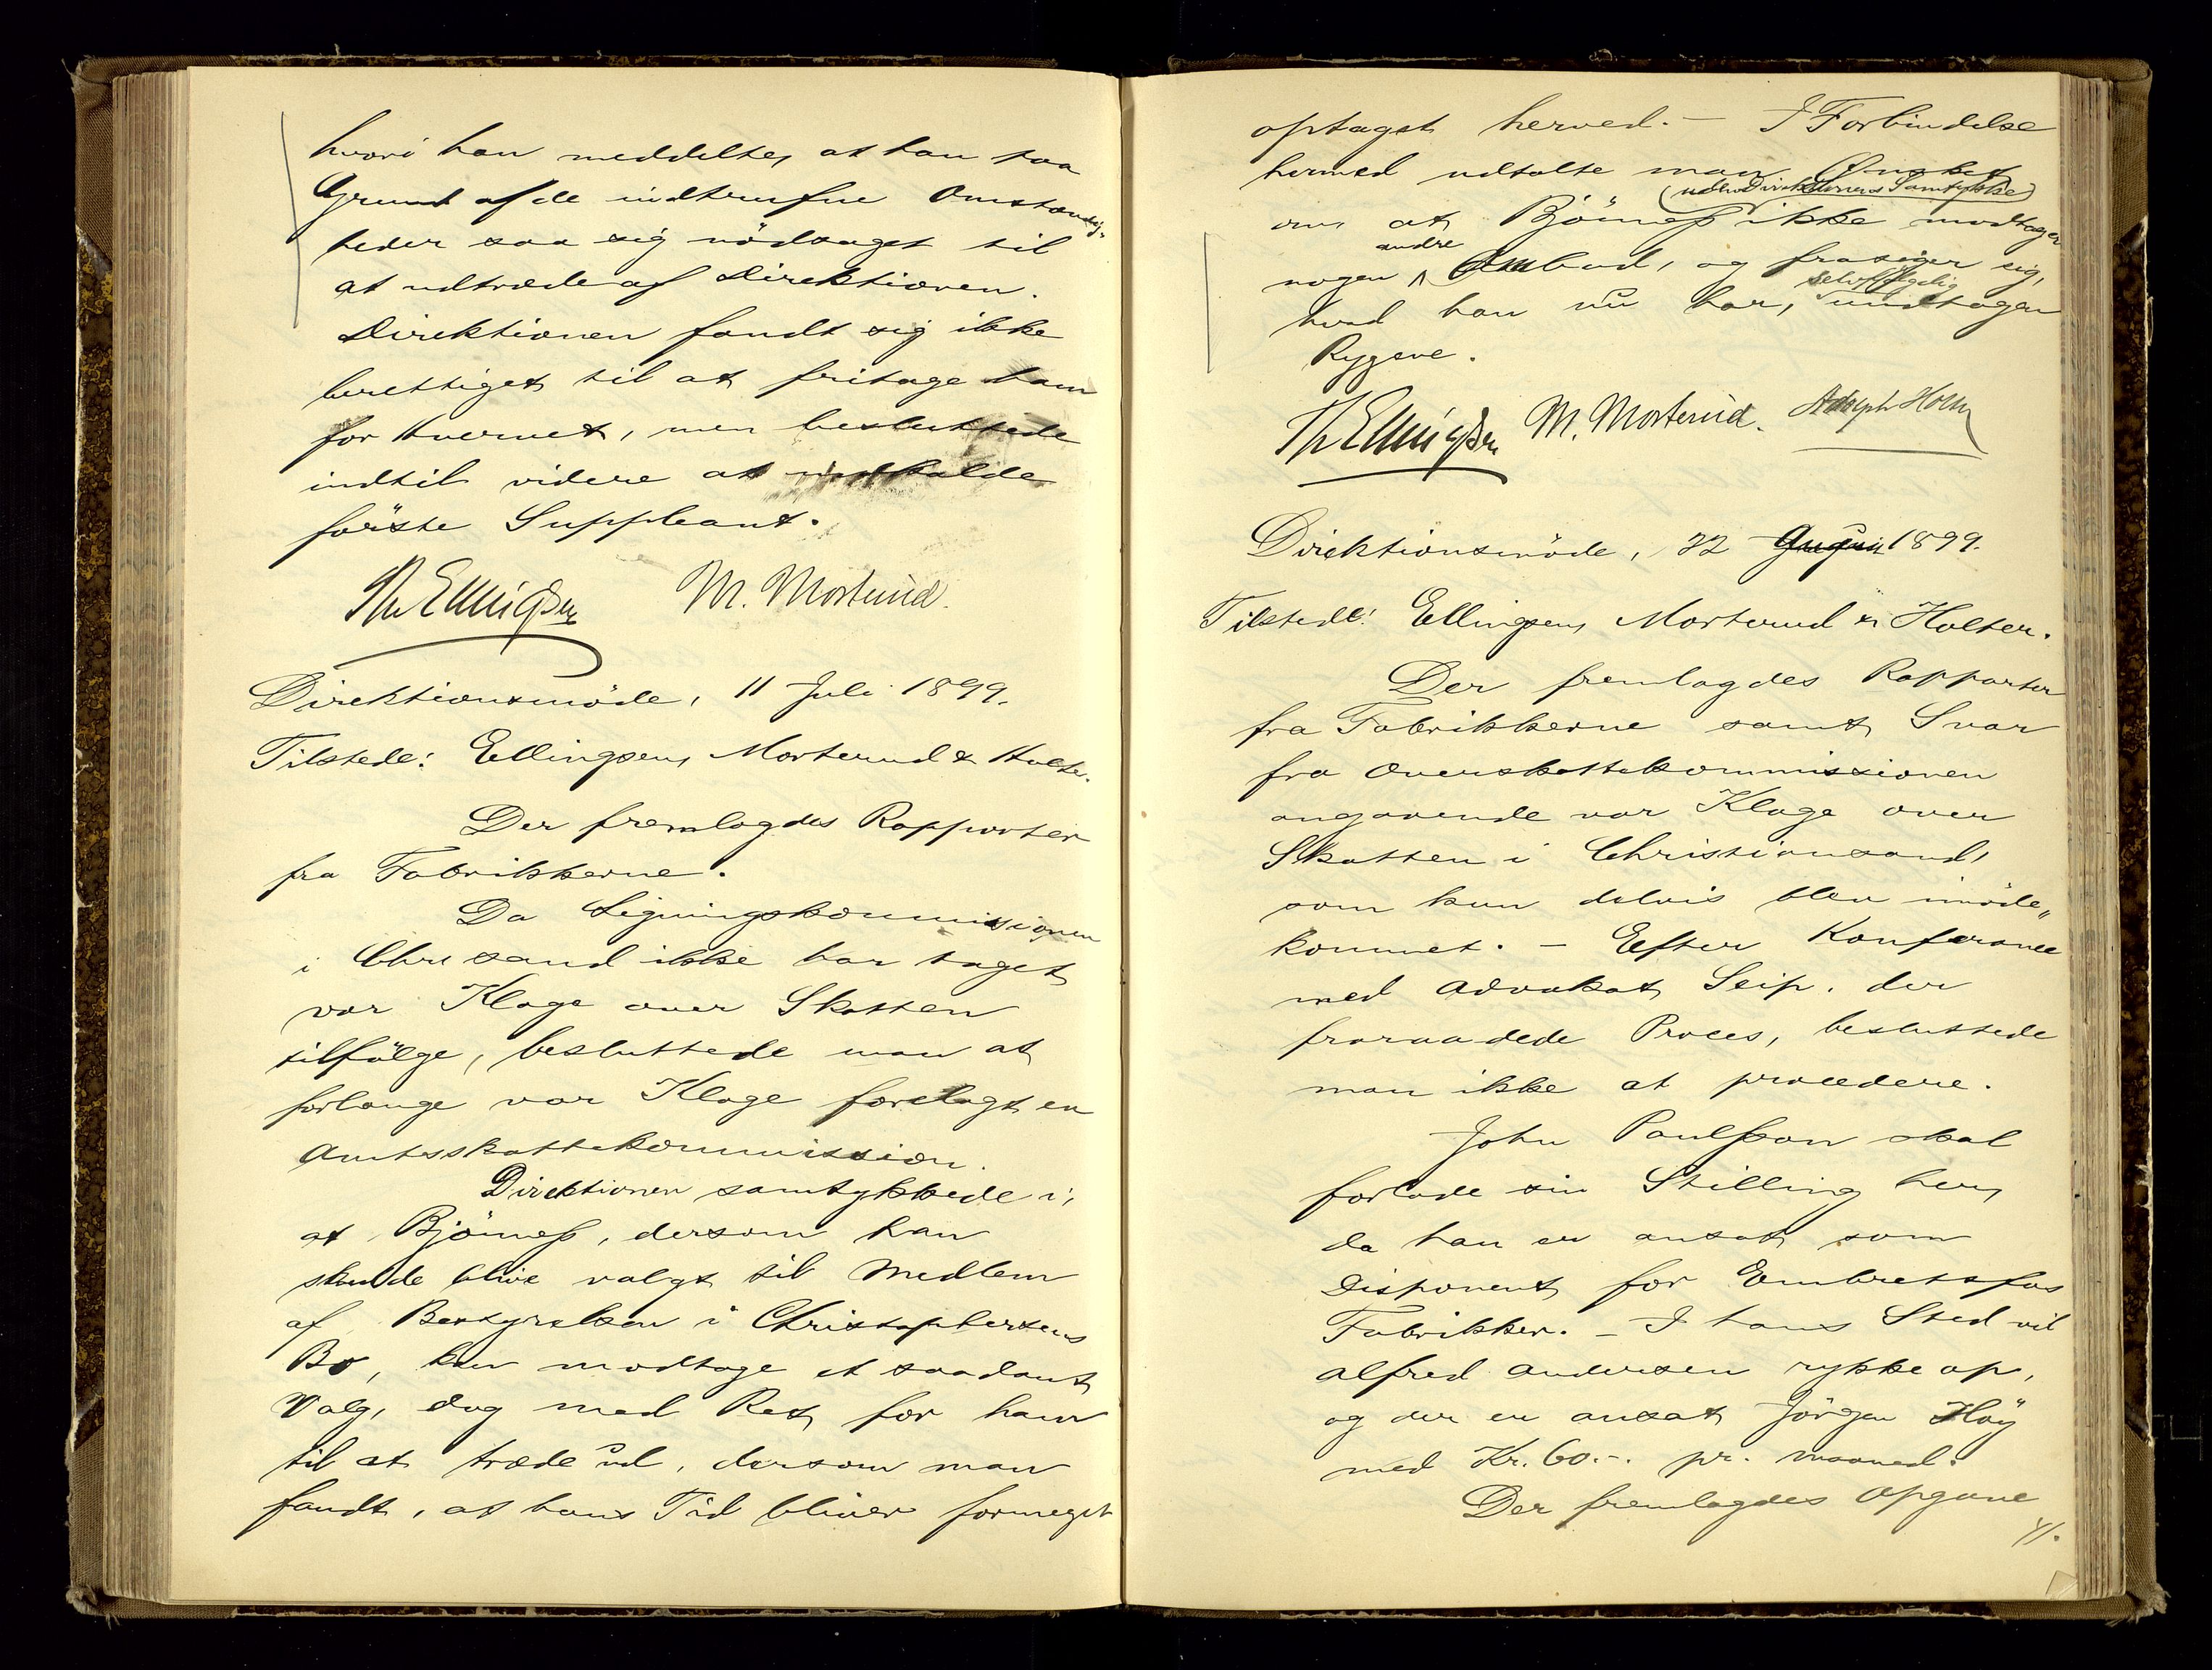 hvori han meddelte, at han paa
Grund af de indtrufne Omstændig-
heder saa sig nödsaget til
at udtræde af Direktionen.
Direktionen fandt sig ikke
berettiget til at fritage ham
for Hvervet, men besluttede
indtil videre at indkalde
förste Suppleant.
Th Ellingsen M. Morterud.
Direktionsmöde, 11 Juli 1899.
Tilstede: Ellingsen, Morterud & Holter.
Der fremlagdes Rapporter
fra Fabrikkerne.
Da Ligningskommissionen
i Chrsand ikke har taget
vor Klage over Skatten
tilfölge, besluttede man at
forlange vor Klage forelagt en
Amtsskattekommission.
Direktionen samtykkede i,
at Björneß, dersom han
skulde blive valgt til Medlem
af Bestyrelsen i Christophersens
Bo, kan modtage et saadant
Valg, dog med Ret for ham
til at træde ud, dersom man
fandt, at hans Tid bliver formeget
optaget herved. - I Forbindelse
hermed udtalte man Önsket
(uden Direktionens Samtykke)
om at Björneß ikke modtager
andre
nogen Ombud, og frasiger sig,
selvfölgelig
hvad han nu har, undtagen
Rygene.
Th Ellingsen M. Morterud. Adolph Holm
Direktionsmöde, 22 August 1899.
Tilstede: Ellingsen, Morterud & Holter.
Der fremlagdes Rapporter
fra Fabrikkerne samt Svar
fra Overskattekommissionen
angaaende vor Klage over
Skatten i Christiansand,
som kun delvis blev imöde„
kommet. - Efter Konferance
med Advokat Seip, der
fraraadede Proces, besluttede
man ikke at procedere.
John Paulsson skal
forlade sin Stilling her,
da han er ansat som
Disponent for Embretsfos
Fabrikker. - I hans Sted vil
Alfred Andersen rykke op,
og der er ansat Jörgen Höy
med Kr. 60.-. pr. Maaned.
Der fremlagdes Opgave
./.